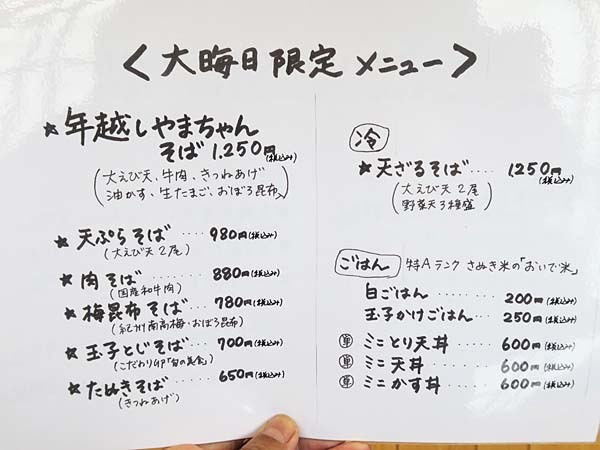 〈大晦日限定メニュー〉
★年越しやまちゃん
そば 1,250円(税込み)
(大えび天、牛肉、きつねあげ
油かす、生たまご、おぼろ昆布)
★天ぷらそば‥‥980円(税込み)
(大えび天2尾)
★肉そば‥‥‥880円(税込み)
(国産和牛肉)
★梅昆布そば‥‥780円(税込み)
(紀州南高梅・おぼろ昆布)
★玉子とじそば‥‥700円(税込み)
(こだわり卵「旬の美食」)
★たぬきそば‥‥‥650円(税込み)
(きつねあげ)
冷
★天ざるそば‥‥1,250円(税込み)
(大えび天2尾
野菜天3種盛)
ごはん 特Aランクさぬき米の「おいで米」
白ごはん‥‥‥‥200円(税込み)
玉子かけごはん‥‥250円(税込み)
単 ミニとり天丼‥‥600円(税込み)
単 ミニ天丼‥‥‥600円(税込み)
単 ミニかす丼‥‥‥600円(税込み)